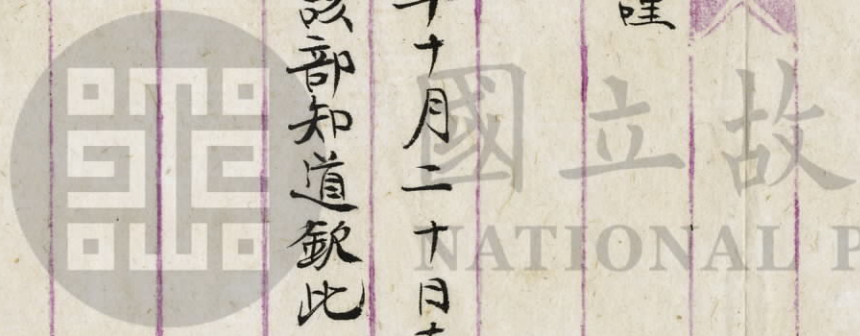 年十月二十日
該部知道欽此
國立故
NATIONAL P